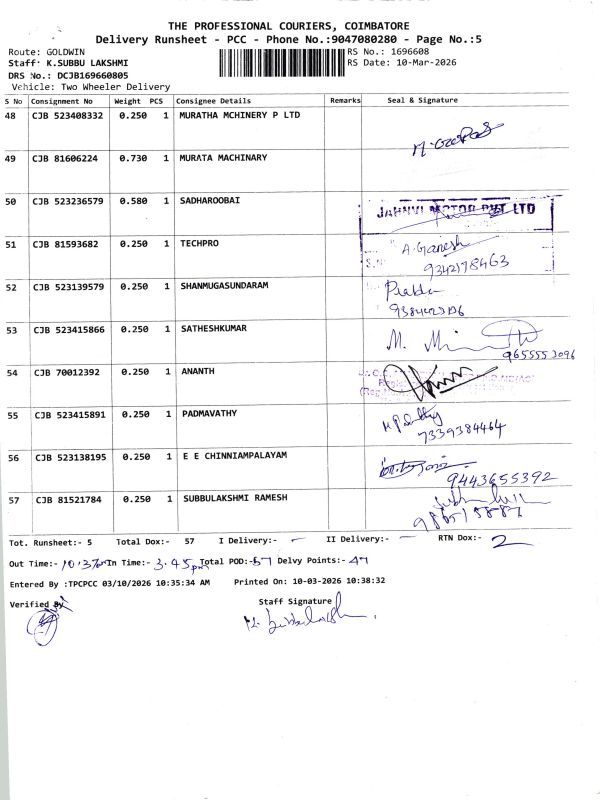 THE PROFESSIONAL COURIERS, COIMBATORE
Delivery Runsheet - PCC - Phone No.:9047080280 - Page No.:5
Route: GOLDWIN RS No.: 1696608
Staff: K.SUBBU LAKSHMI RS Date: 10-Mar-2026
DRS No.: DCJB169660805
Vehicle: Two Wheeler Delivery
S No Consignment No Weight PCS Consignee Details Remarks Seal & Signature
48 CJB 523408332 0.250 1 MURATHA MCHINERY P LTD
49 CJB 81606224 0.730 1 MURATA MACHINARY
50 CJB 523236579 0.580 1 SADHAROOBAI
JAHNVI MOTOR PVT LTD
51 CJB 81593682 0.250 1 TECHPRO A. Ganesh
9342178463
52 CJB 523139579 0.250 1 SHANMUGASUNDARAM
53 CJB 523415866 0.250 1 SATHESHKUMAR
9655553096
54 CJB 70012392 0.250 1 ANANTH
55 CJB 523415891 0.250 1 PADMAVATHY
7339384464
56 CJB 523138195 0.250 1 E E CHINNIAMPALAYAM
9443655392
57 CJB 81521784 0.250 1 SUBBULAKSHMI RAMESH
Tot. Runsheet:- 5 Total Dox:- 57 I Delivery:- - II Delivery:- - RTN Dox:- 2
Out Time:- 10.37 In Time:- 3.45 pm Total POD:-57 Delvy Points:- 47
Entered By :TPCPCC 03/10/2026 10:35:34 AM Printed On: 10-03-2026 10:38:32
Verified By Staff Signature